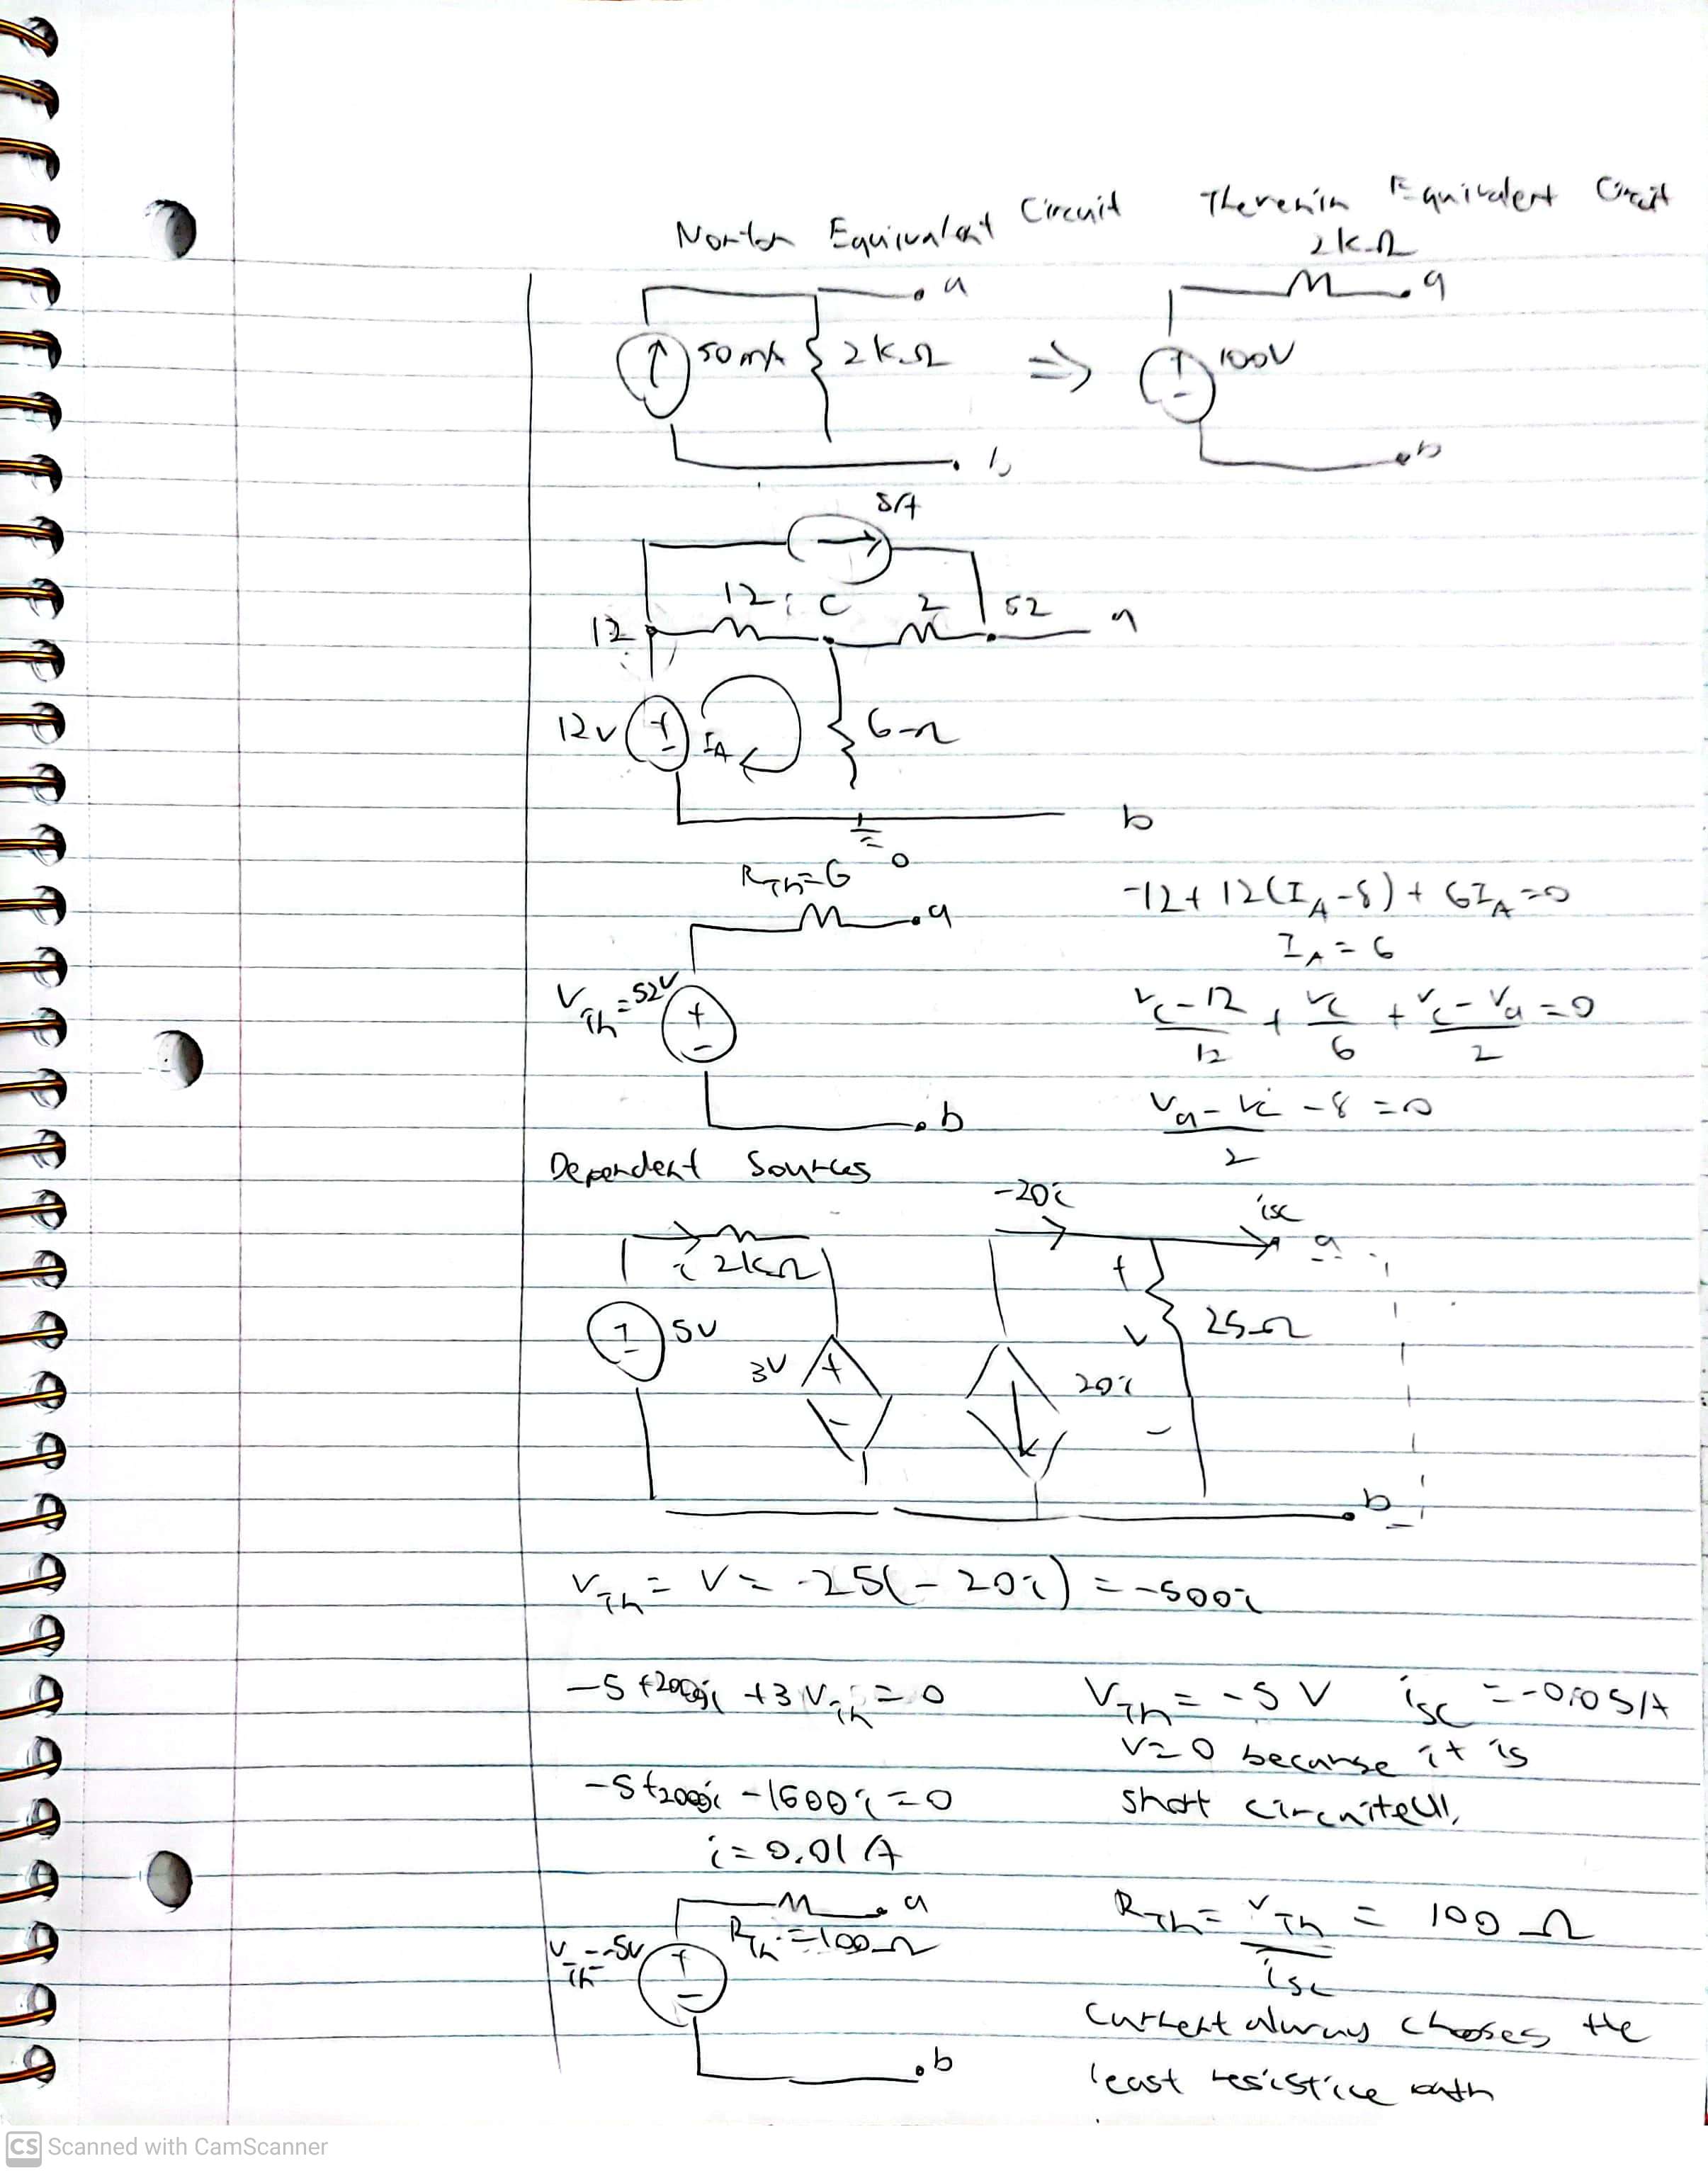 Norton Equivalent Circuit Thevenin Equivalent Circuit
2kΩ
a
a
50mA 2kΩ ⇒ 100V
b
b
8A
12 i C 2 52 a
12
12V I_A 6Ω
b
0
R_Th=6
a
-12+12(I_A-8)+6I_A=0
I_A=6
V_Th=52V
(V_C-12)/12 + V_C/6 + (V_C-V_a)/2 =0
(V_a-V_C)/2 -8=0
b
Dependent Sources
-20i
isc
a
i 2kΩ
+
5V
V 25Ω
3V
20i
-
b
V_Th = V = -25(-20i) = -500i
-5+2000i+3V_Th=0 V_Th=-5V i_sc=-0.05A
V=0 because it is
-5+2000i-1500i=0 short circuited!
i=0.01A
a
R_Th=100Ω
V_Th=-5V
R_Th= V_Th/isc = 100Ω
b
current always chooses the
least resistive path
CS Scanned with CamScanner